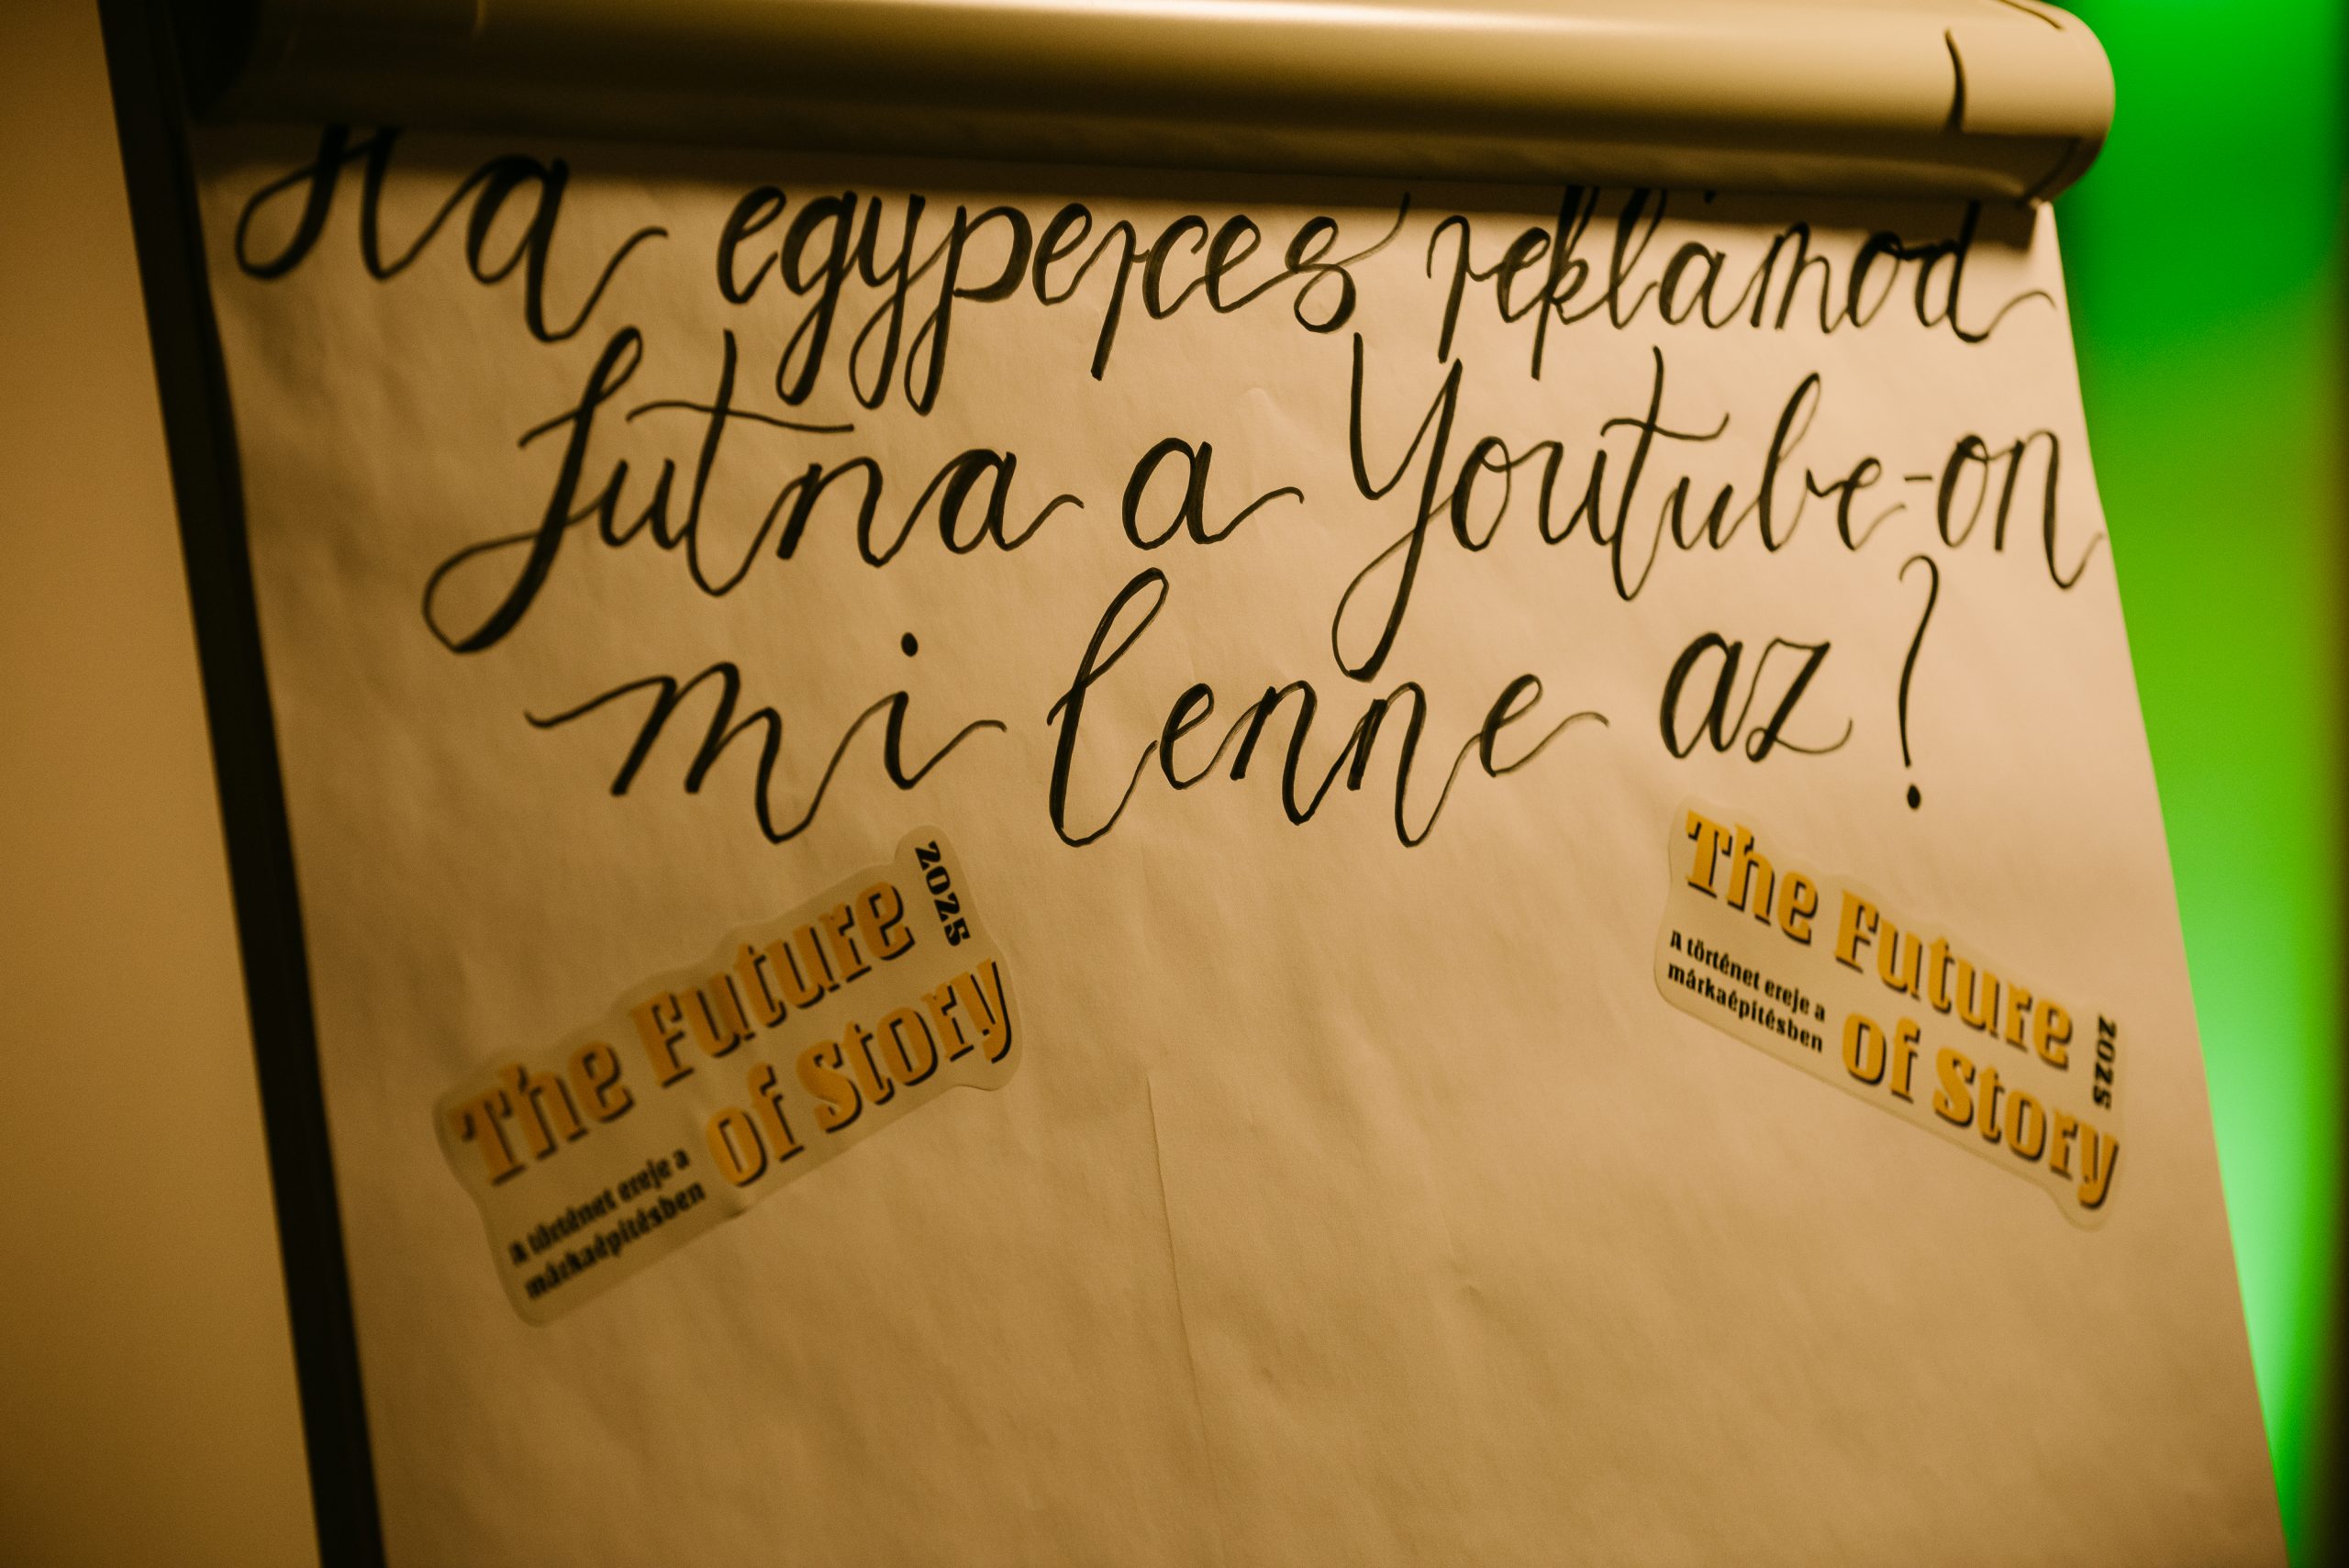 Ha egyperces reklámod
futna a Youtube-on
mi lenne az?
The Future
2025
of Story
A történet ereje a
márkaépítésben
The Future
2025
of Story
A történet ereje a
márkaépítésben